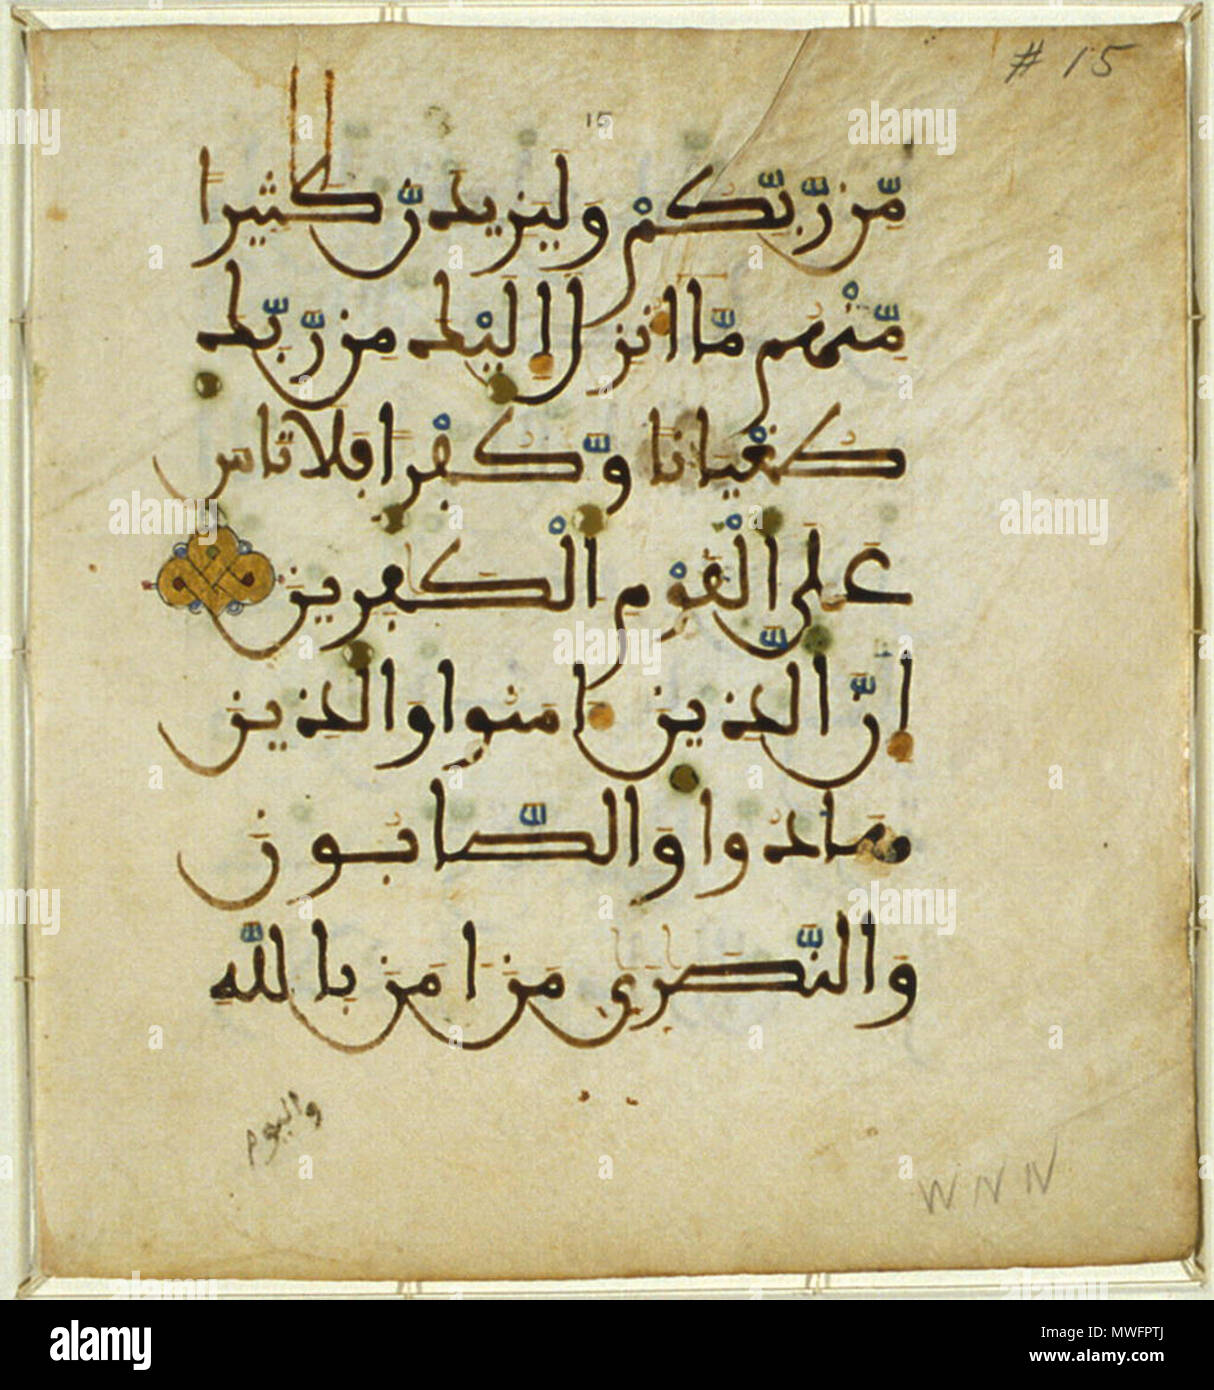 # 15
15
مّن رّبّكمْ وليزيدنّ كثيرا
مّنْهم مّا انزل اليْك من رّبّك
طغْيانا وّكفْرا فلا تاس
على الْقوْم الْكفرين
انّ الذين امنوا والذين
هادوا والصّابون
والنّصرى من امن بالله
واليوم
alamy
Image ID: MWFPTJ
www.alamy.com